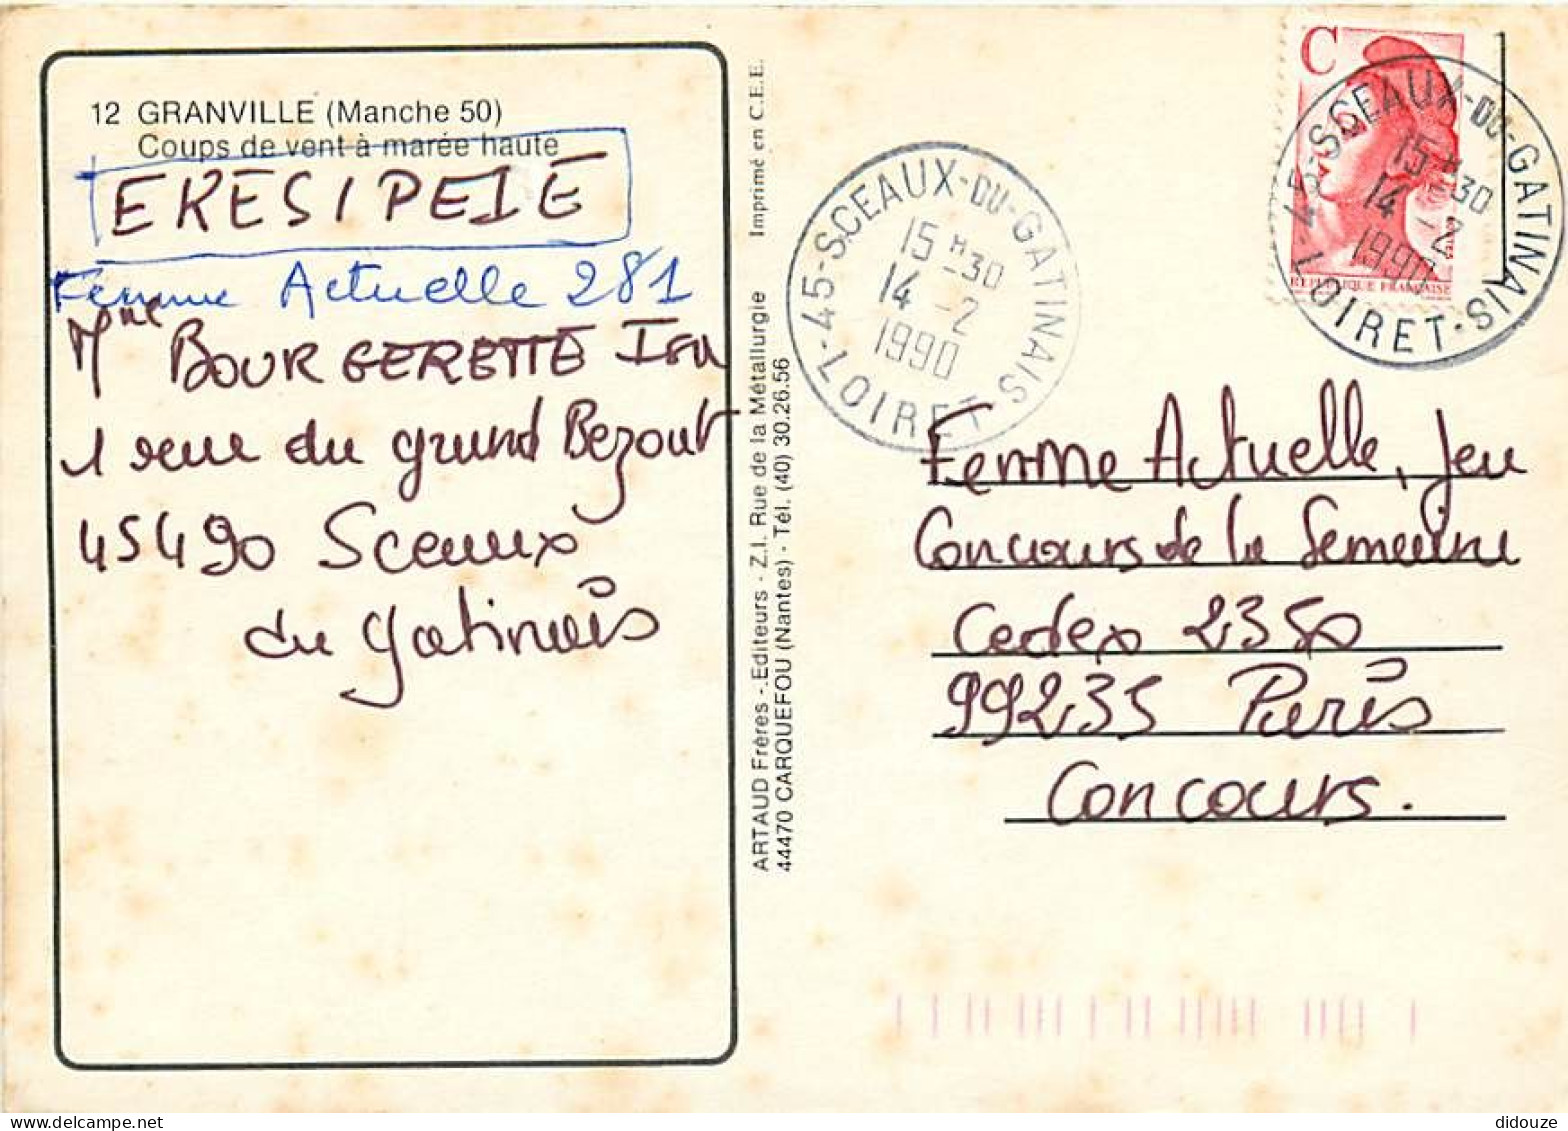 12 GRANVILLE (Manche 50)
Coups de vent à marée haute
ERESIPELE
Femme Actuelle 281
Mme BOURGERETTE
1 rue du grand Bezout
45490 Sceaux
du gatinais
Imprimé en C.E.E.
ARTAUD Frères - Editeurs - Z.I. Rue de la Métallurgie
44470 CARQUEFOU (Nantes) - Tél. (40) 30.26.56
45-SCEAUX-DU-GATINAIS
15 H 30
14 -2
1990
LOIRET
C
REPUBLIQUE FRANÇAISE
45-SCEAUX-DU-GATINAIS
15 H 30
14 -2
1990
LOIRET
Femme Actuelle, Jeu
Concours de la Semaine
Cedex 2350
99235 Paris
Concours.
delcampe.net
didouze